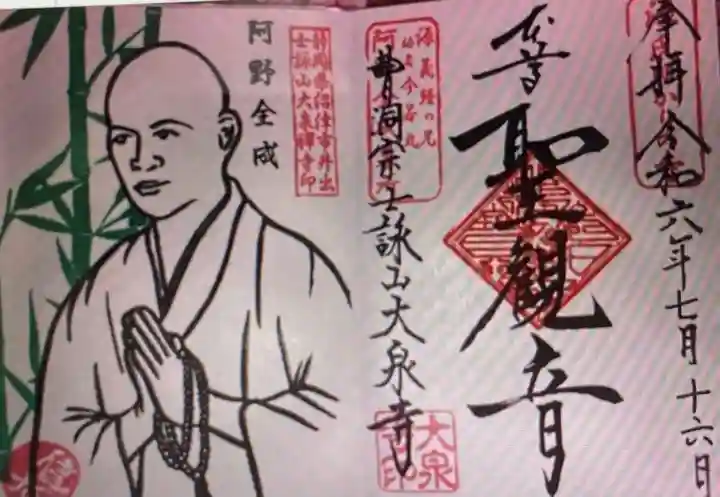 奉拝 令和六年七月十六日
本尊
聖観音
源義経の兄
幼名今若丸
曹洞宗 士詠山大泉寺
大泉
寺印
静岡県沼津市井出
士詠山大泉禅寺印
阿野全成